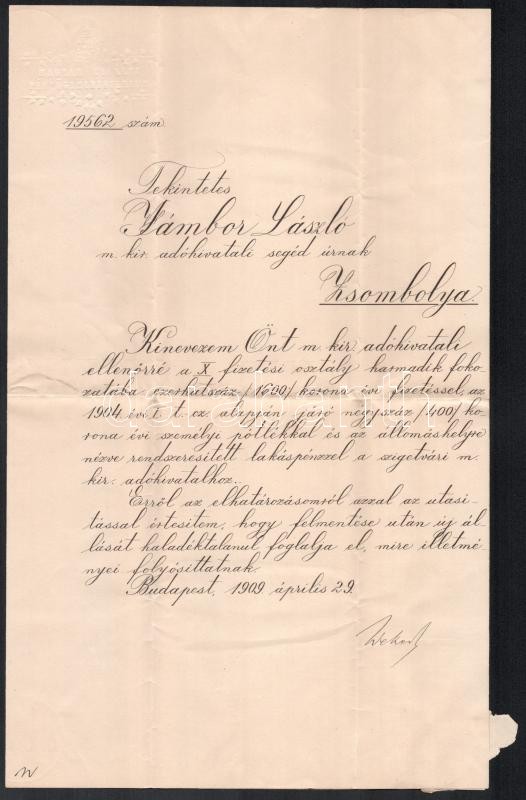 19562 szám.
Tekintetes
Jámbor László
m. kir. adóhivatali segéd úrnak
Zsombolya.
Kinevezem Önt m. kir. adóhivatali
ellenőrré a X fizetési osztály harmadik foko-
zatába ezerhatszáz /1600/ korona évi fizetéssel, az
1904 évi I. t. cz. alapján járó négyszáz /400/ ko-
rona évi személyi pótlékkal és az állomáshelyre
nézve rendszeresitett lakáspénzzel a szigetvári m.
kir. adóhivatalhoz.
Erről az elhatározásomról azzal az utasi-
tással értesitem, hogy felmentése után új ál-
lását haladéktalanul foglalja el, mire illetmé
nyei folyósittatnak.
Budapest, 1909 április 29.
Wekerle
darabanth